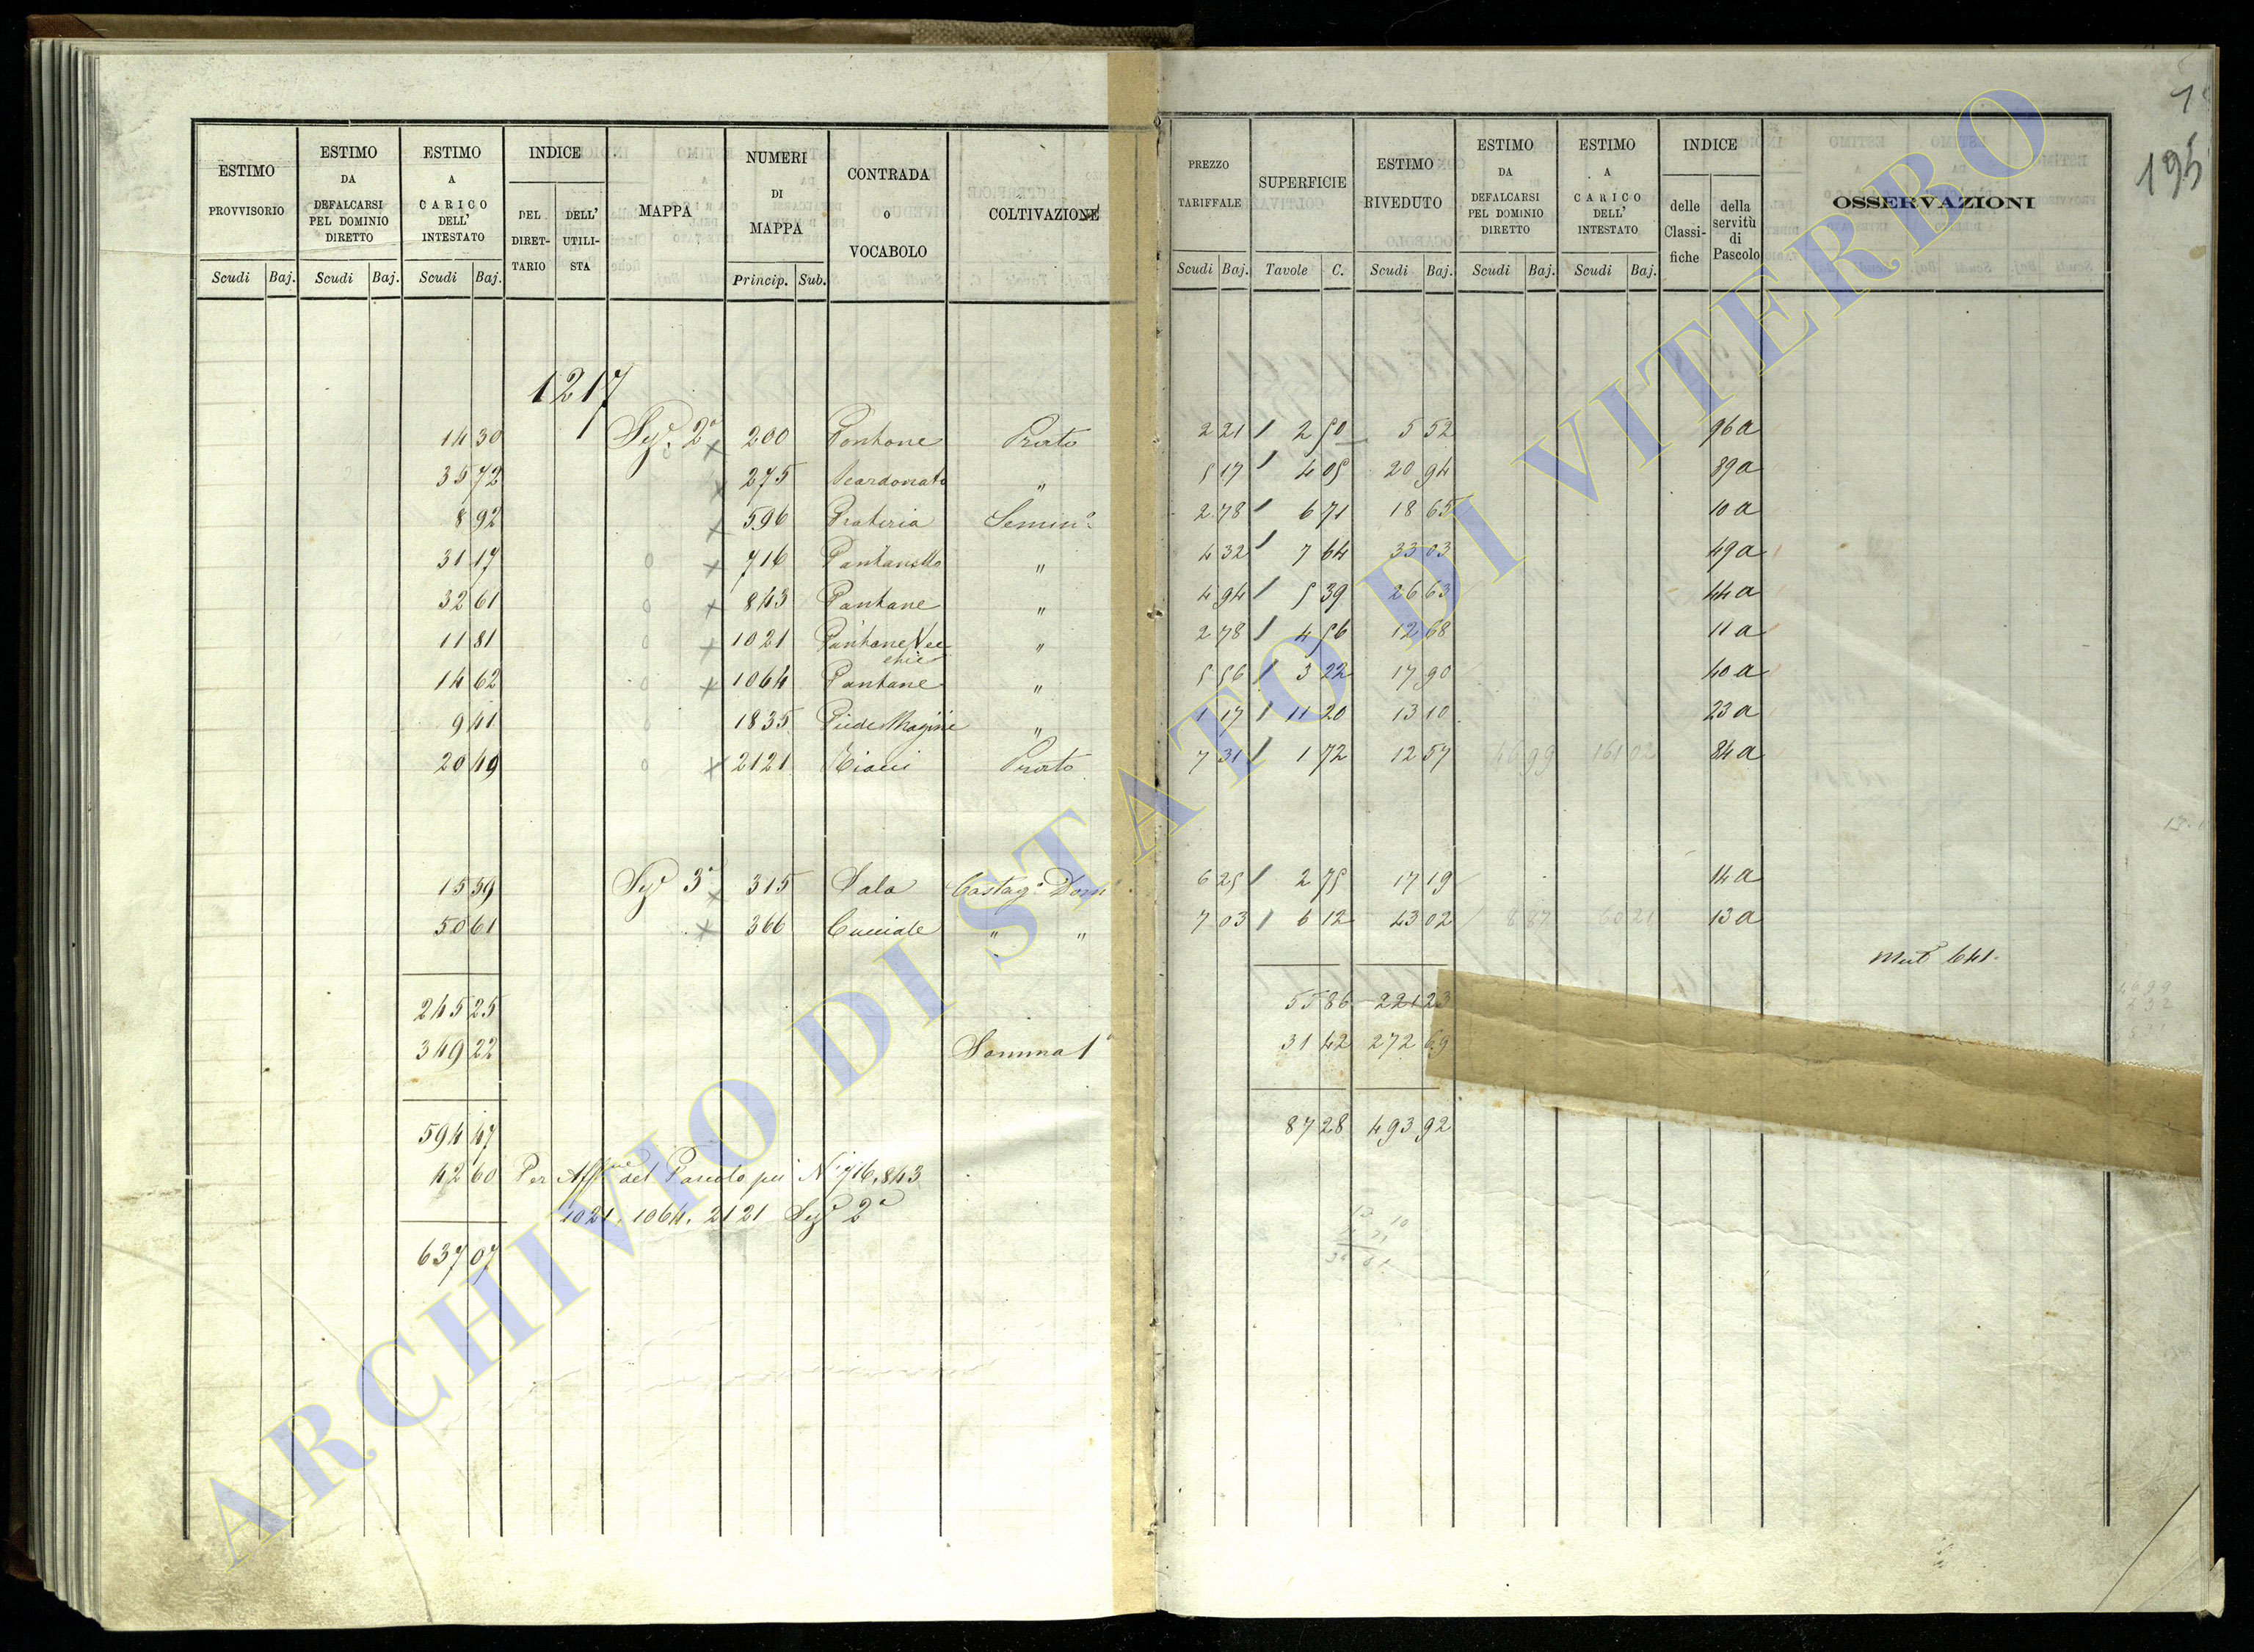 195
ESTIMO PROVVISORIO | ESTIMO DA DEFALCARSI PEL DOMINIO DIRETTO | ESTIMO A CARICO DELL' INTESTATO | INDICE DEL DIRETTARIO | DELL' UTILISTA | MAPPA | NUMERI DI MAPPA | CONTRADA O VOCABOLO | COLTIVAZIONE | PREZZO TARIFFALE | SUPERFICIE | ESTIMO RIVEDUTO | ESTIMO DA DEFALCARSI PEL DOMINIO DIRETTO | ESTIMO A CARICO DELL' INTESTATO | INDICE delle Classifiche | della servitù di Pascolo | OSSERVAZIONI
Scudi Baj. | Scudi Baj. | Scudi Baj. | Princip. Sub. | Scudi Baj. | Tavole C. | Scudi Baj. | Scudi Baj. | Scudi Baj.
1217
14 30 Sez.e 2a 200 Pontone Prato 2 21 2 50 5 52 96a
35 72 275 " 5 17 4 05 20 94 89a
8 92 596 Prateria Semin.o 2 78 6 71 18 65 10a
31 17 716 Pantanello " 4 32 7 64 33 03 49a
32 61 843 Pantane " 4 94 5 39 26 63 44a
11 81 1021 Pantane Vecchie " 2 78 4 56 12 68 11a
14 62 1064 Pantane " 5 56 3 22 17 90 40a
9 41 1835 " 1 17 11 20 13 10 23a
20 49 2121 Prato 7 31 1 72 12 57 46 99 161 02 84a
15 59 Sez.e 3a 315 Sala Castag.o Dom.o 6 25 2 75 17 19 14a
50 61 366 " " 7 03 6 12 43 02 8 87 60 21 13a
Mut 641
245 25 55 86 221 23
349 22 Somma 1a 31 42 272 69
594 47 87 28 493 92
42 60 Per Aff.ne del Pascolo pei N.i 716, 843
1021, 1064, 2121 Sez.e 2a
637 07
ARCHIVIO DI STATO DI VITERBO